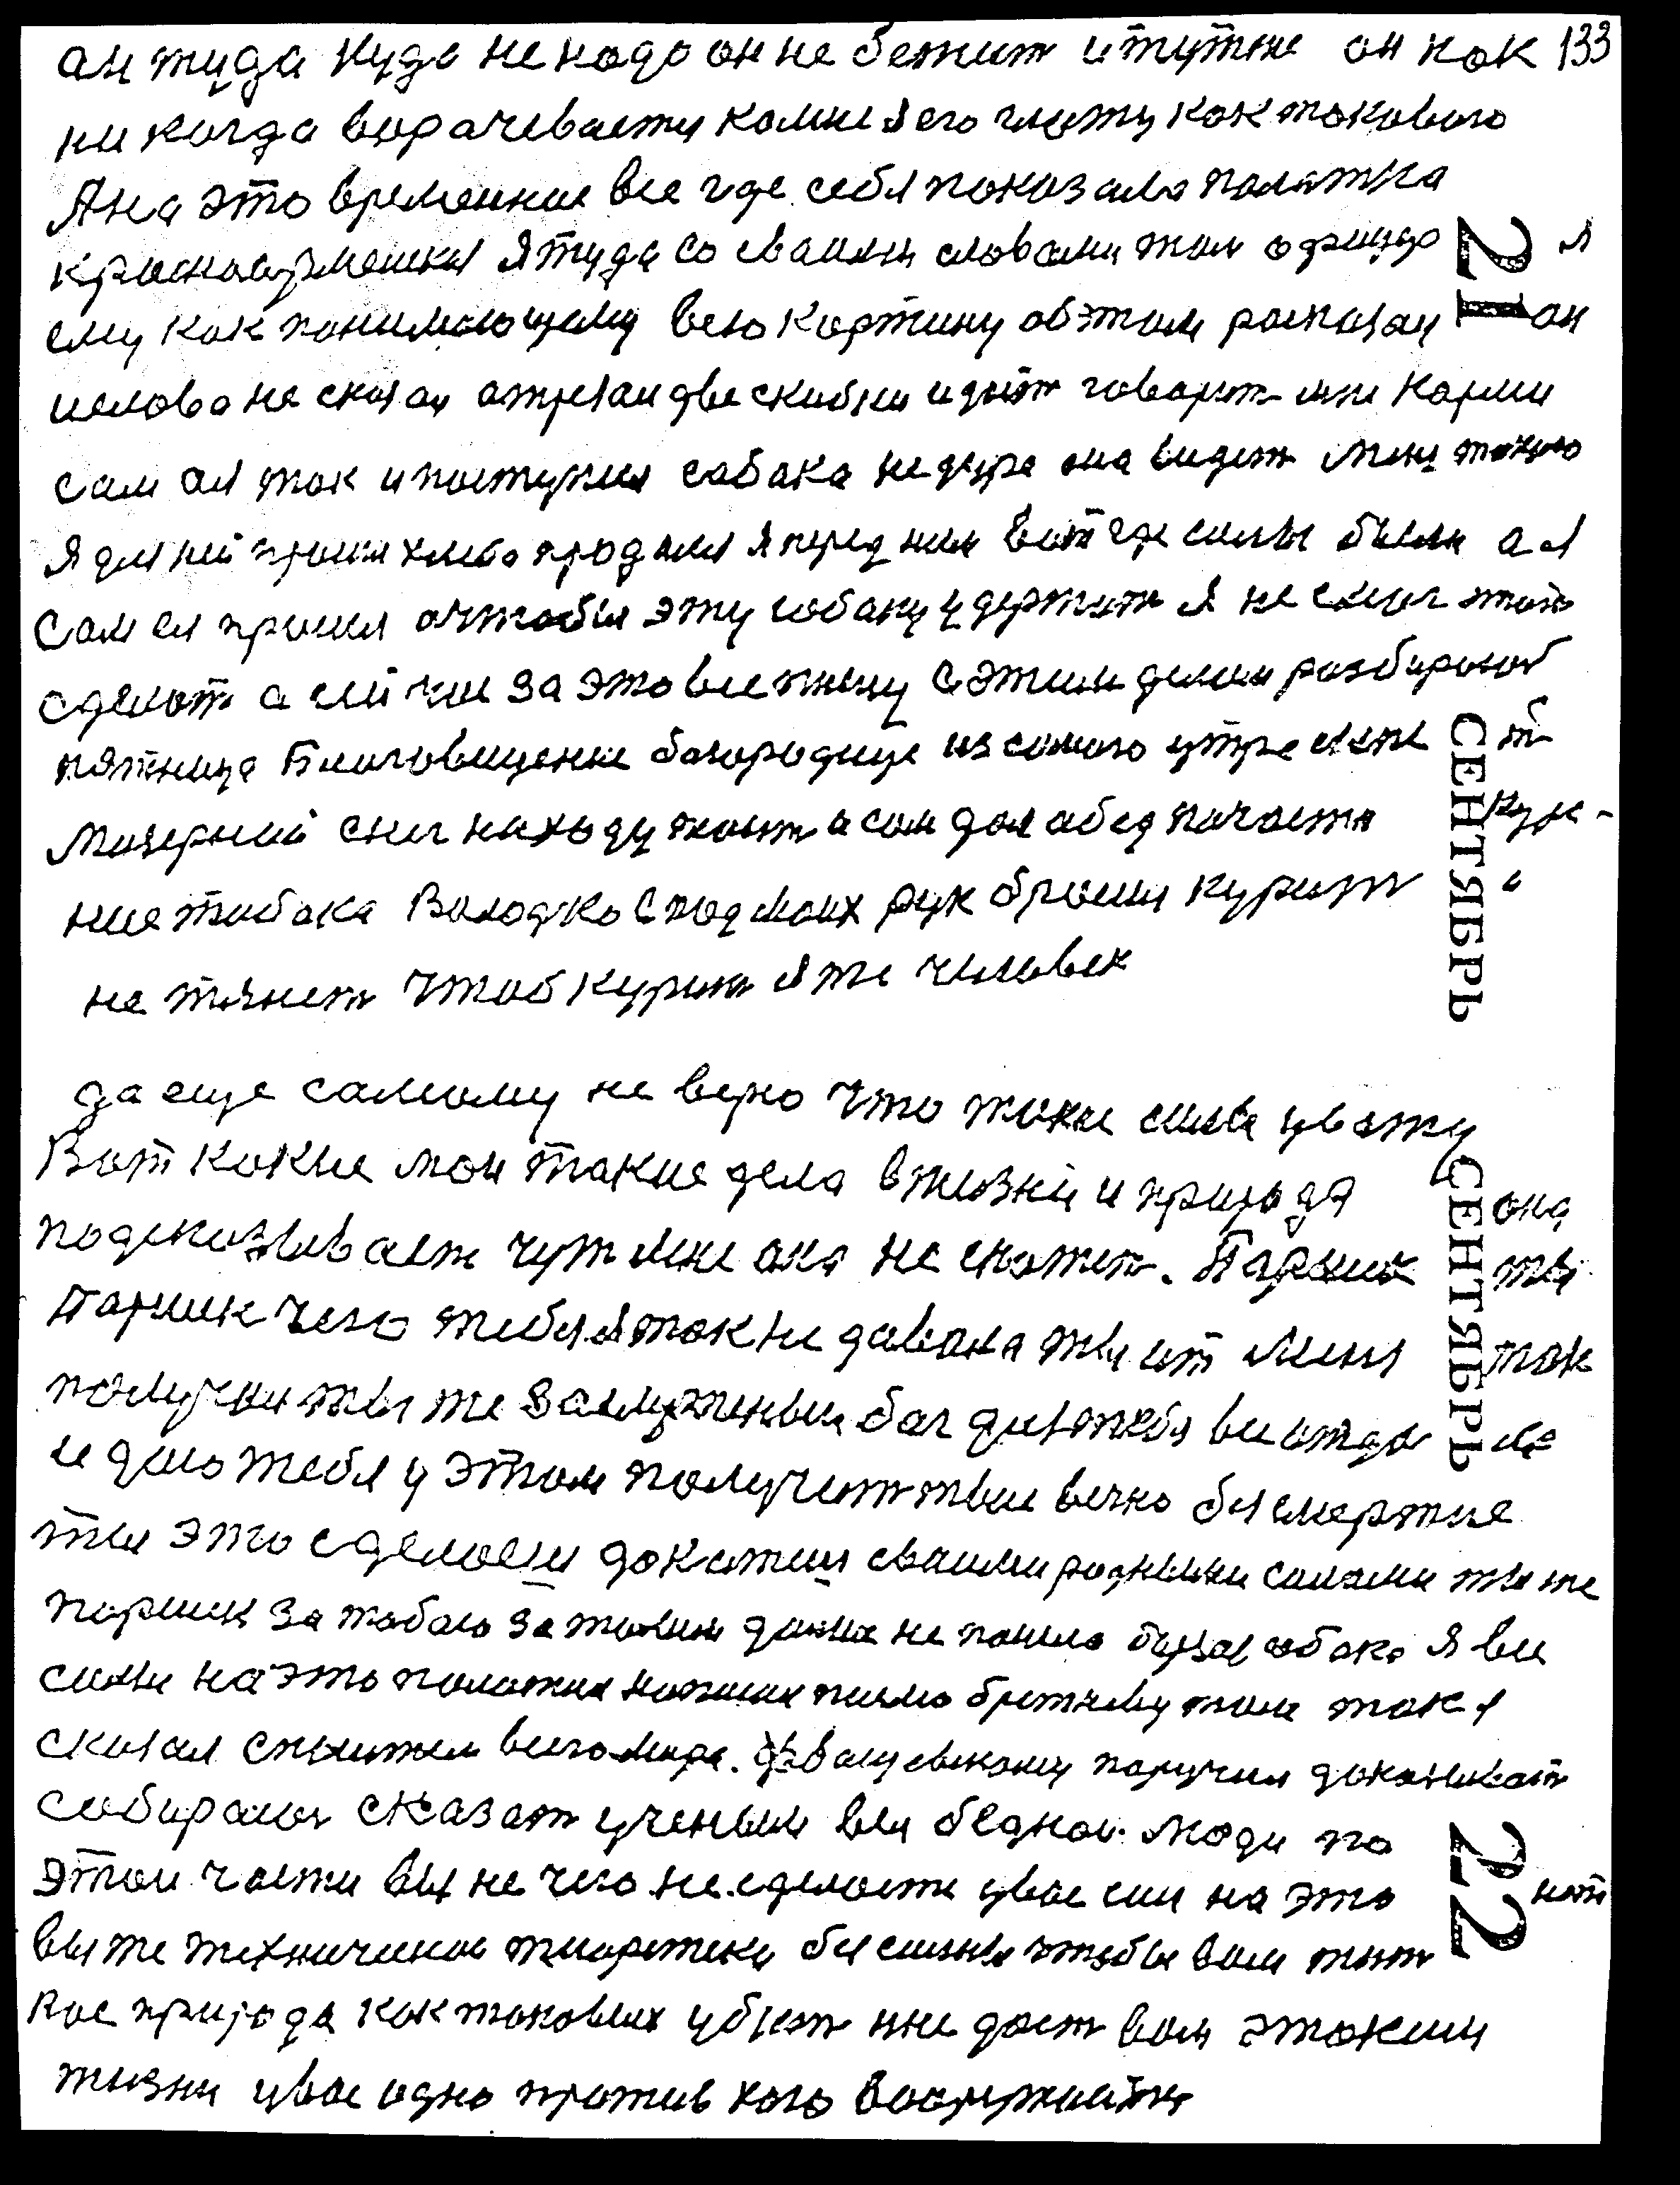 он туда куда не надо он не бежит и тут же он как 133
ни когда ворачевается ко мне я его глажу как такового
А на это временние все где себя показала палатка
красноармешкая я туда со своими словами там офицер я
ему как понимающему всю картину об этом расказал он
и слова не сказал отрезал две скибки и дает говорит мне карми
сам а я так и поступил сабака не дура она видет мену такую
я для ней прошу хлеба продался я перед ним вот где силы были а я
сам ея прошу а чтобы эту собаку удержать я не смог этого
сделать а сейчас за это все пишу с этим делом разбираюс
пятница Благовещение богородице из самого утра мяте т
мазерний снег находу тает а сам дал обед
ние табака Володка с под моих рук бросил курить а
не тянет чтоб курить я же чиловек
да еще самому не верю что такие силы увяжу
Вот какие мои такие дела в жизни и природа она
подсказывает чуть мне она не скажет. Паршик ты
Паршик чего тебя я так не давала ты ит меня так
получил ты же заслуженый бог для тебя все отдам ле
и даю тебя у этом получит твое вечно бя смертие
ты это сделаеш докажиш своими родными силами ты же
паршик за табаю за такими даже не пошла бузая собака я все
силы на это положил напишу писмо брежневу там так я
сказал слышжем всего мира. поручил доканчиват
собирался сказат ученым вы бедной люди по
этои части вы не чего не сделаете увас сил на это нет
вы же техническое теоретеки бя силные чтобы вам жит
вас природа как таковых убрет нне даст вам этакии
жизни увас одно против кого вооружаться
21
СЕНТЯБРЬ
СЕНТЯБРЬ
22